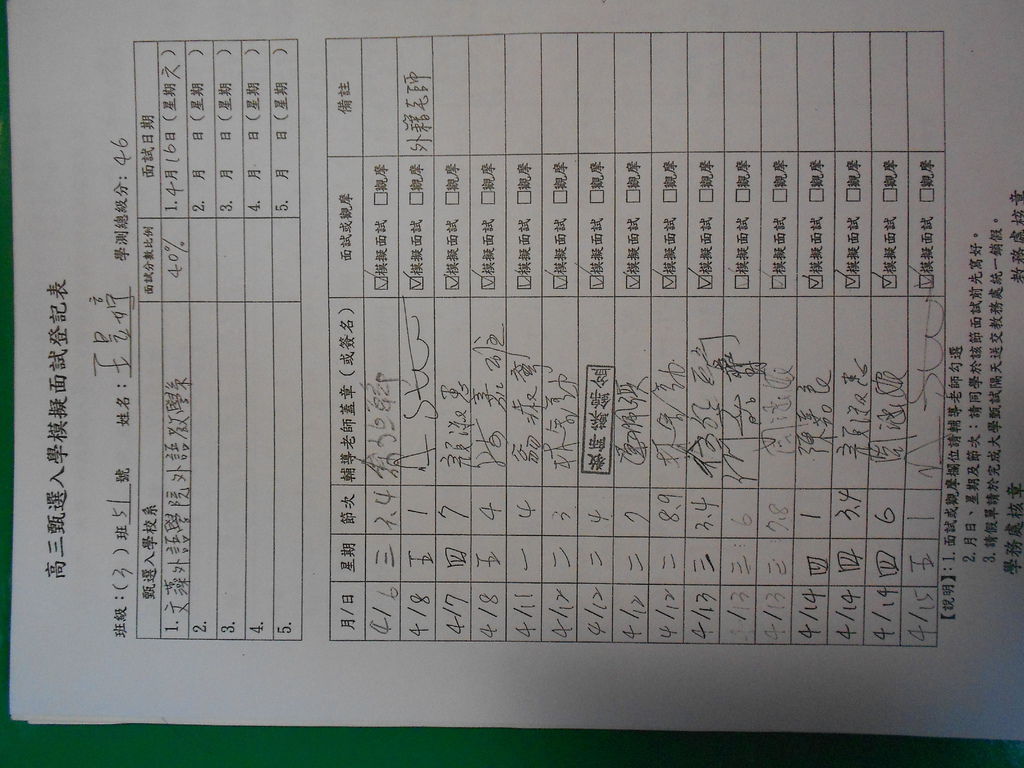 高三甄選入學模擬面試登記表
班級：(3)班 51 號 姓名：王 學測總級分：46
甄選入學校系 面試分數比例 面試日期
1. 文藻外語學院外語教學系 40% 1. 4月16日(星期六)
2. 2. 月 日(星期 )
3. 3. 月 日(星期 )
4. 4. 月 日(星期 )
5. 5. 月 日(星期 )
月/日 星期 節次 輔導老師蓋章(或簽名) 面試或觀摩 備註
4/6 三 3.4 ☑模擬面試 □觀摩
4/8 五 1 ☑模擬面試 □觀摩 外籍老師
4/7 四 7 ☑模擬面試 □觀摩
4/8 五 4 ☑模擬面試 □觀摩
4/11 一 4 ☑模擬面試 □觀摩
4/12 二 3 ☑模擬面試 □觀摩
4/12 二 4 ☑模擬面試 □觀摩
4/12 二 7 ☑模擬面試 □觀摩
4/12 二 8.9 ☑模擬面試 □觀摩
4/13 三 3.4 ☑模擬面試 □觀摩
4/13 三 6 □模擬面試 □觀摩
4/13 三 7.8 ☑模擬面試 □觀摩
4/14 四 1 ☑模擬面試 □觀摩
4/14 四 3.4 ☑模擬面試 □觀摩
4/14 四 6 ☑模擬面試 □觀摩
4/15 五 1 ☑模擬面試 □觀摩
【說明】：1. 面試或觀摩欄位請輔導老師勾選
2. 月日、星期及節次：請同學於該節面試前先寫好。
3. 請假單請於完成大學甄試隔天送交教務處統一銷假。
學務處核章 教務處核章